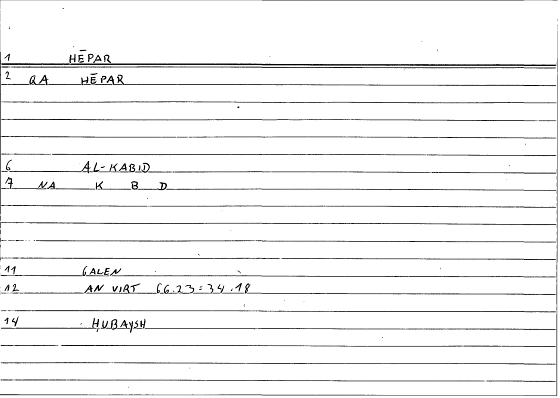 1 HĒPAR
2 QA HĒPAR
6 AL-KABID
7 NA K B D
11 GALEN
12 AN VIRT 66.23=34.18
14 ḤUBAYSH